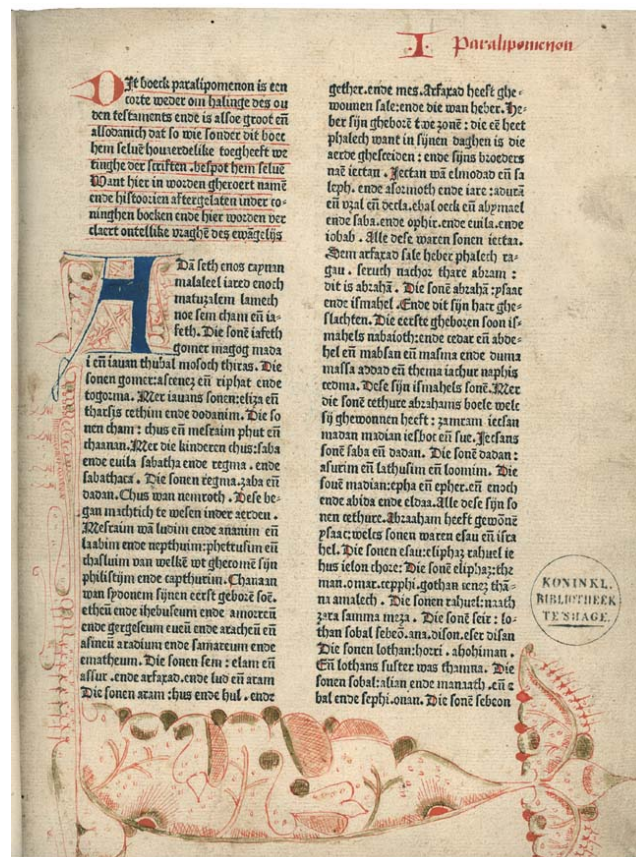 I Paralipomenon
Dit boeck paralipomenon is een
corte weder om halinge des ou
den testaments ende is alsoe groot eñ
alsodanich dat so wie sonder dit boec
hem seluē houerdelike toegheeft we
tinghe der scriften .bespot hem seluē
Want hier in worden gheroert namē
ende historien aftergelaten inder co-
ninghen bocken ende hier worden ver
claert ontellike vraghē des ewāgelijs
ADā seth enos caynan
malaleel iared enoch
matuzalem lamech
noe sem cham eñ ia-
feth. Die sonē iafeth
gomer magog mada
i eñ iauan thubal mosoch thiras. Die
sonen gomer:ascenez eñ riphat ende
togorma. Mer iauans sonen:eliza eñ
tharsis cethim ende dodanim. Die so
nen cham : chus eñ mesraim phut eñ
chanaan. Mer die kinderen chus:saba
ende euila sabatha ende regma . ende
sabathaca . Die sonen regma.zaba eñ
dadan. Chus wan nemroth . Dese be-
gan machtich te wesen inder aerden .
Mesraim wā ludim ende ananim eñ
laabim ende nepthuim:phetrusim eñ
chasluim van welkē wt ghecomē sijn
philistijm ende capthurim. Chanaan
wan sydonem sijnen eerst geborē soē.
etheū ende ihebuseum ende amorreū
ende gergeseum eueū ende aracheū eñ
asineū aradium ende samareum ende
ematheum. Die sonen sem : elam eñ
assur . ende arfaxad. ende lud eñ aram
Die sonen aram :hus ende hul . ende
gether. ende mes. Arfaxad heeft ghe-
wounen sale:ende die wan heber. He-
ber sijn gheborē twe zonē : die eē heet
phalech want in sijnen daghen is die
aerde ghesceiden : ende sijns broeders
naē iectan . Jectan wā elmodad eñ sa
leph. ende asormoth ende iare : adurā
eñ vzal eñ decla. ebal oeck eñ abymael
ende saba. ende ophir. ende euila. ende
iobab . Alle dese waren sonen iectan.
Sem arfaxad sale heber phalech ra-
gau . seruch nachor thare abram :
dit is abrahā . Die sonē abrahā :ysaac
ende ismahel .Ende dit sijn haer ghe-
slachten. Die eerste gheboren soon is-
mahels nabaioth:ende cedar eñ abde-
hel eñ mabsan eñ masma ende duma
massa addad eñ thema iachur naphis
cedma. Dese sijn ismahels sonē. Mer
die sonē cethure abrahams boele welc
sij ghewonnen heeft : zamram iecsan
madan madian iesbot eñ sue. Jecsans
sonē saba eñ dadan. Die sonē dadan :
asurim eñ lathusim eñ loomim. Die
sonē madian:epha eñ epher. eñ enoch
ende abida ende eldaa. Alle dese sijn so
nen cethure. Abraaham heeft gewōnē
ysaac:welcs sonen waren esau eñ isra
hel. Die sonen esau:eliphaz rahuel ie
hus ielon chore: Die sonē eliphaz:the
man.omar.sepphi.gothan senez thā-
na amalech . Die sonen rahuel:naath
zara samma meza . Die sonē seir : lo-
than sobal sebeō.ana.dison.eser disan
Die sonen lothan:horri . ahohiman .
Eñ lothans suster was thamna. Die
sonen sobal:alian ende manaath .eñ e
bal ende sephi.onan. Die sonē sebeon
KONINKL.
BIBLIOTHEEK
TE'SHAGE.